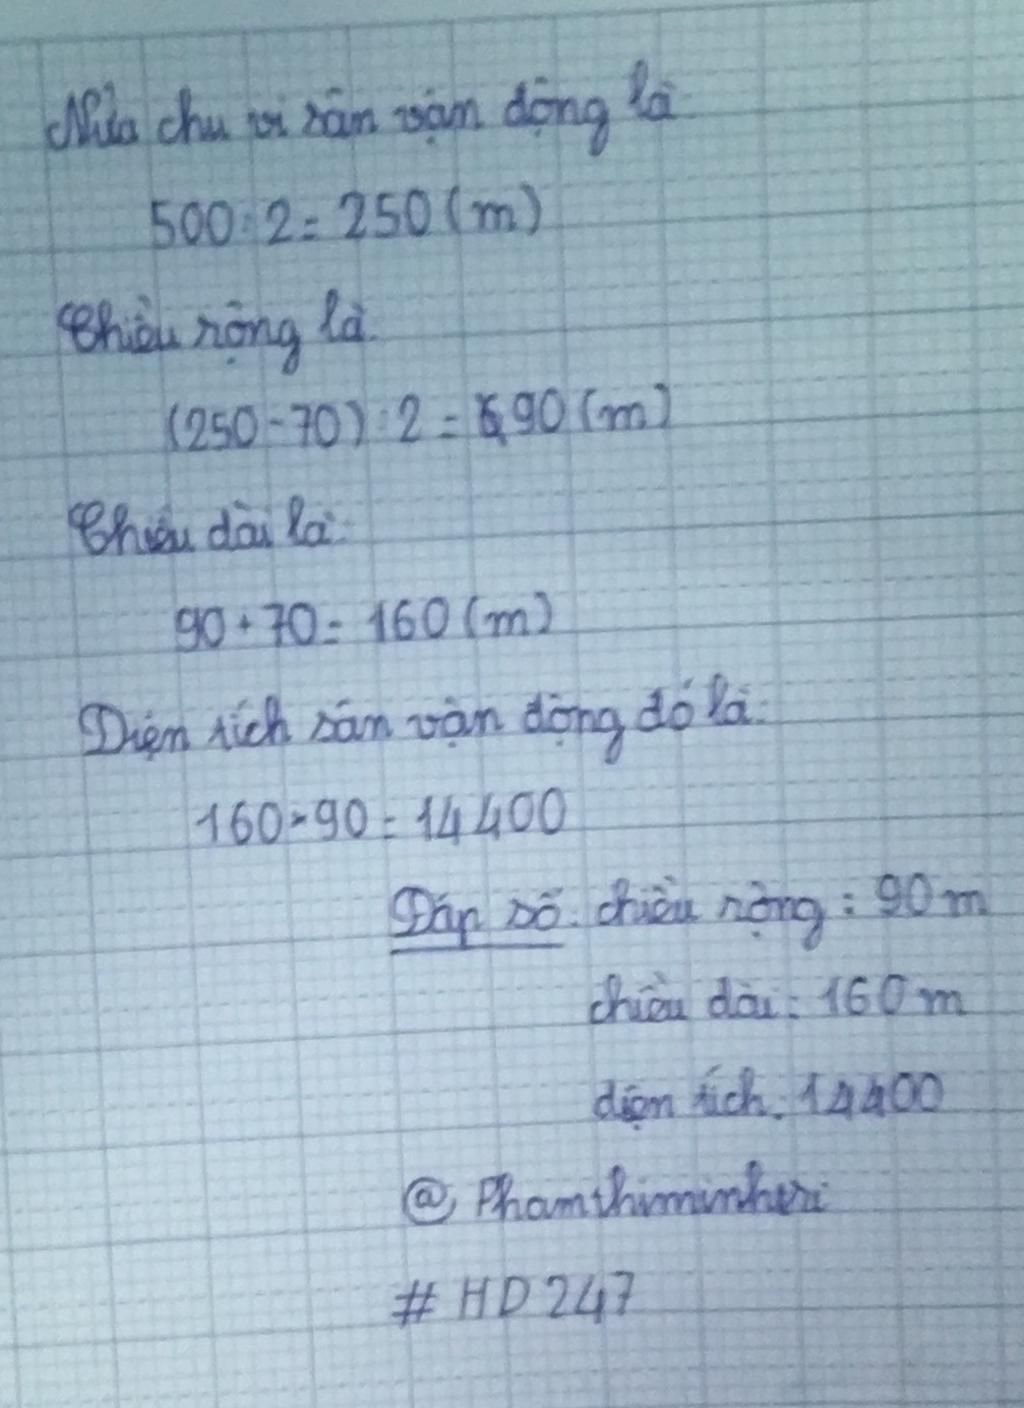 Nửa chu vi sân vận động là:
500 : 2 = 250 (m)
Chiều rộng là:
(250 - 70) : 2 = 90 (m)
Chiều dài là:
90 + 70 = 160 (m)
Diện tích sân vận động đó là:
160 × 90 = 14400
Đáp số: chiều rộng : 90 m
chiều dài : 160 m
diện tích : 14400
@ Phamthiminhtri
# HD 247